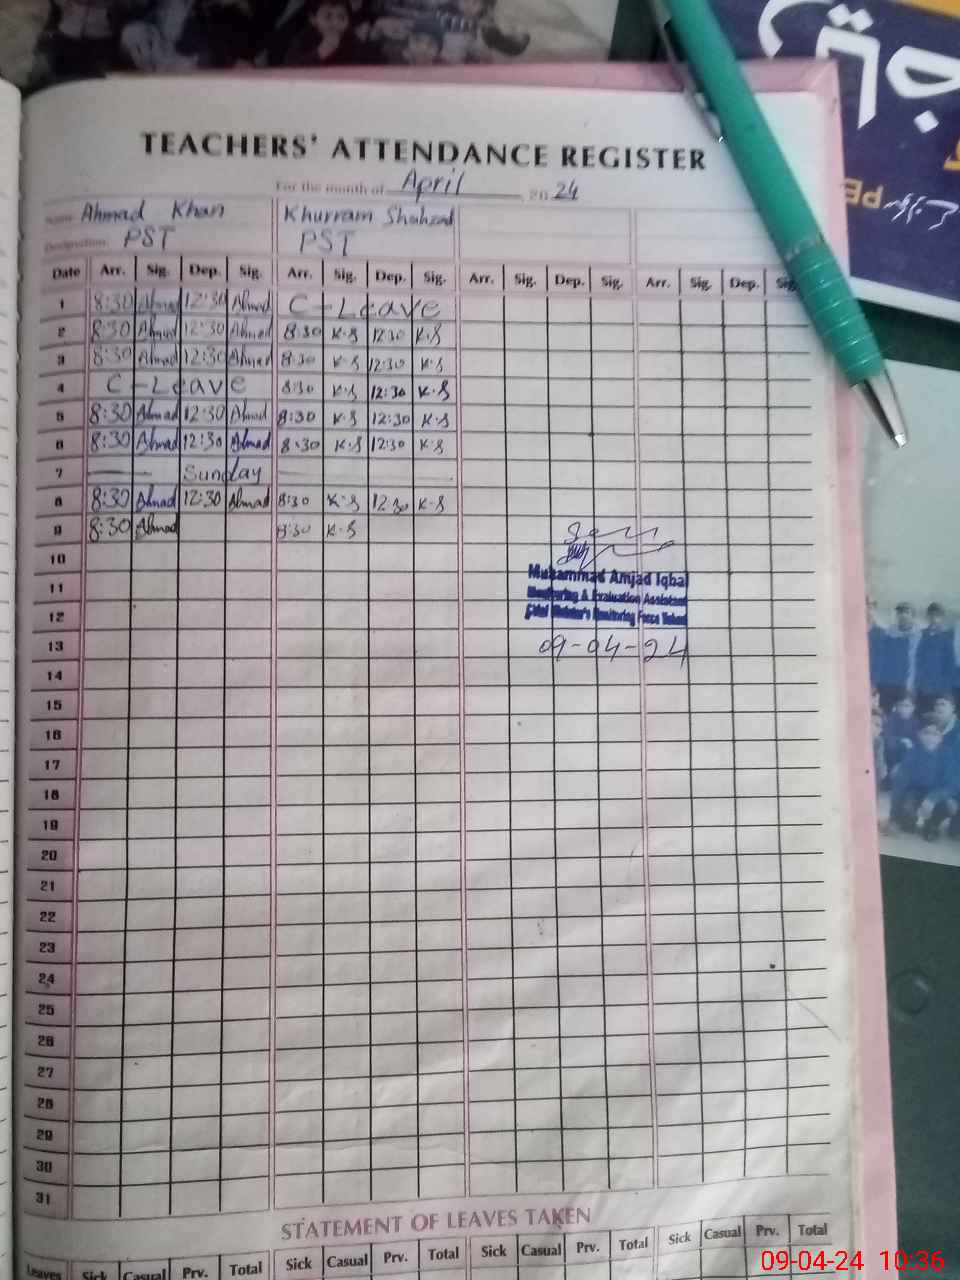 TEACHERS' ATTENDANCE REGISTER
For the month of April 20 24
Name Ahmad Khan Khurram Shahzad
Designation PST PST
Date Arr. Sig. Dep. Sig. Arr. Sig. Dep. Sig. Arr. Sig. Dep. Sig. Arr. Sig. Dep. Sig.
1 8:30 Ahmad 12:30 Ahmad C-Leave
2 8:30 Ahmad 12:30 Ahmad 8:30 K.S 12:30 K.S
3 8:30 Ahmad 12:30 Ahmad 8:30 K.S 12:30 K.S
4 C-Leave 8:30 K.S 12:30 K.S
5 8:30 Ahmad 12:30 Ahmad 8:30 K.S 12:30 K.S
6 8:30 Ahmad 12:30 Ahmad 8:30 K.S 12:30 K.S
7 Sunday
8 8:30 Ahmad 12:30 Ahmad 8:30 K.S 12:30 K.S
9 8:30 Ahmad 8:30 K.S
10
11
Muhammad Amjad Iqbal
Monitoring & Evaluation Assistant
12
Chief Minister's Monitoring Force
13
09-04-24
14
15
16
17
18
19
20
21
22
23
24
25
26
27
28
29
30
31
STATEMENT OF LEAVES TAKEN
Leaves Sick Casual Prv. Total Sick Casual Prv. Total Sick Casual Prv. Total Sick Casual Prv. Total
09-04-24 10:36